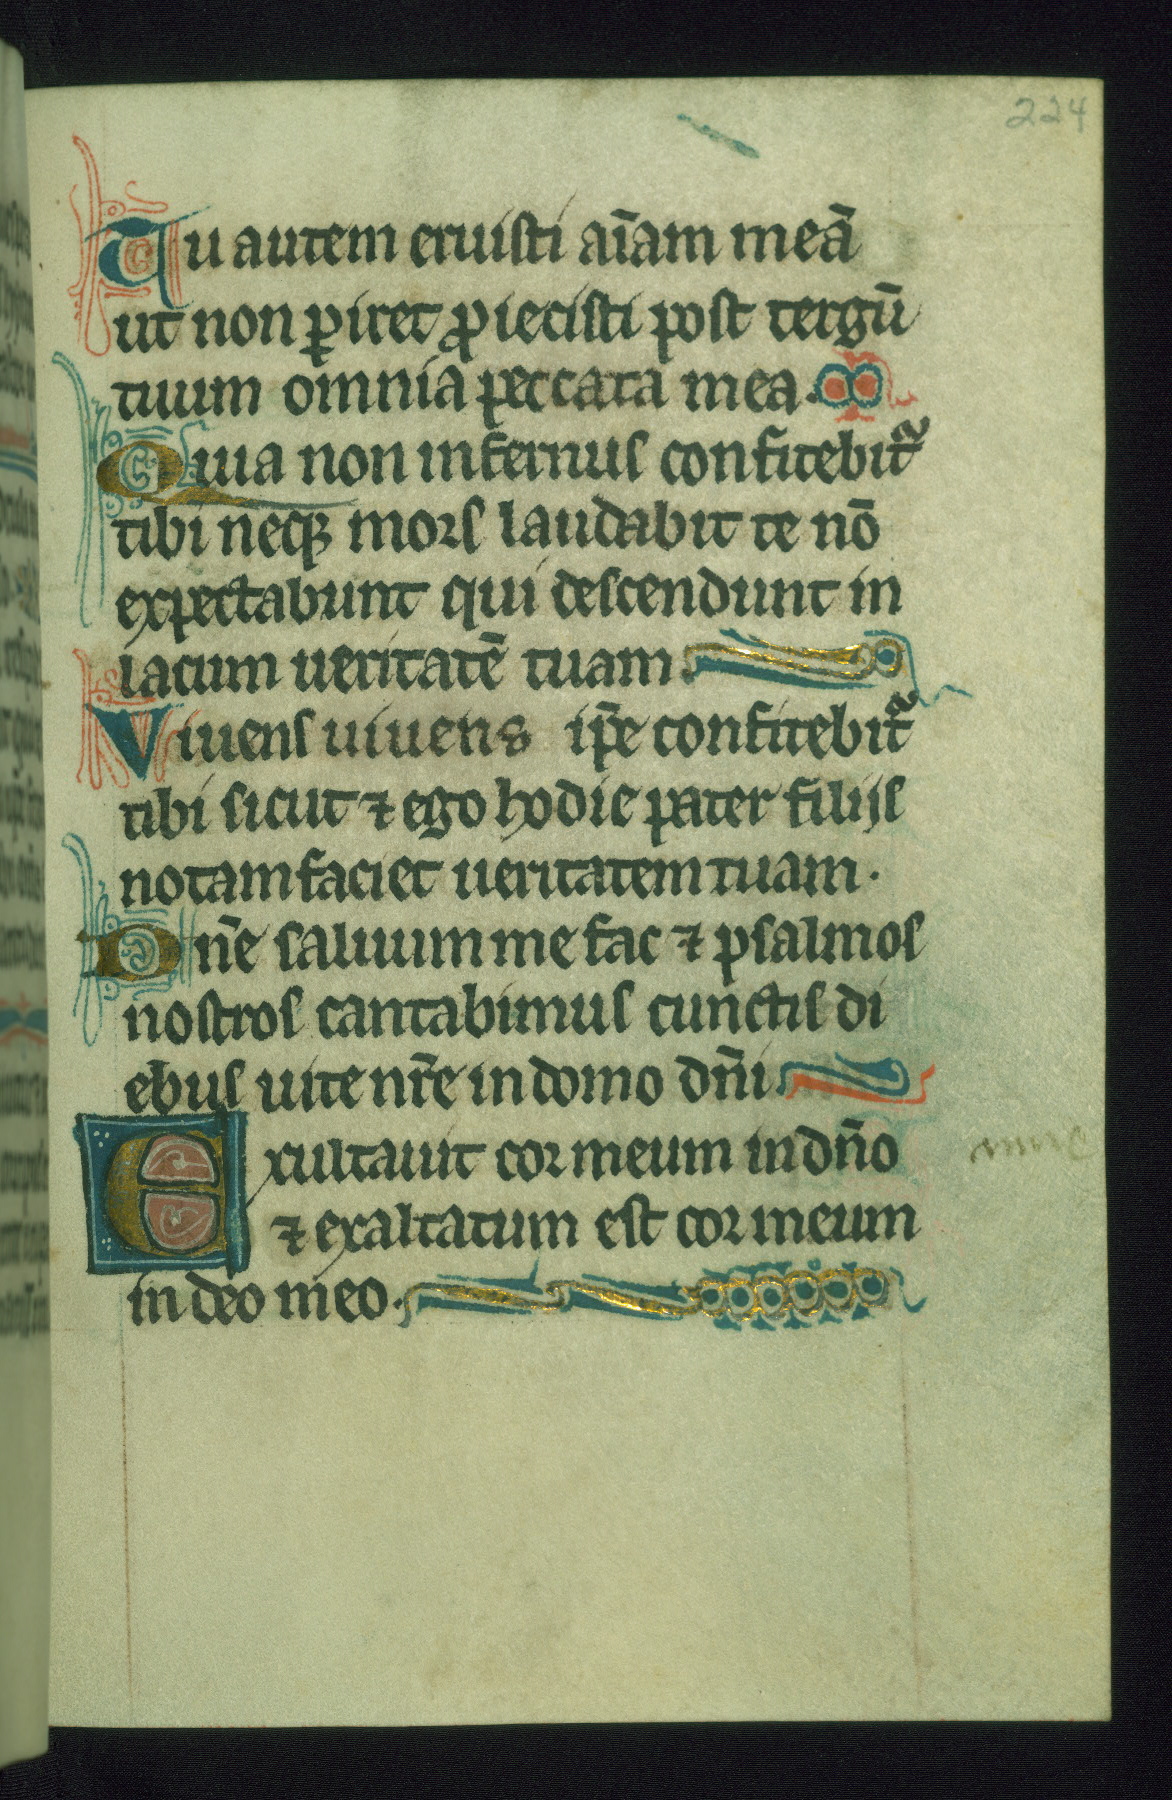 224
Tu autem eruisti aīam meā
ut non ꝑiret ꝓiecisti post tergū
tuum omnia peccata mea.
Quia non infernus confitebit᷑
tibi neqꝫ mors laudabit te nō
expectabunt qui descendunt in
lacum ueritatē tuam.
Viuens uiuens ip̄e confitebit᷑
tibi sicut ⁊ ego hodie pater filijs
notam faciet ueritatem tuam.
Dn̄e saluum me fac ⁊ psalmos
nostros cantabimus cunctis di
ebus uite nr̄e in domo dn̄i.
Exultauit cor meum in dn̄o
⁊ exaltatum est cor meum
in deo meo.